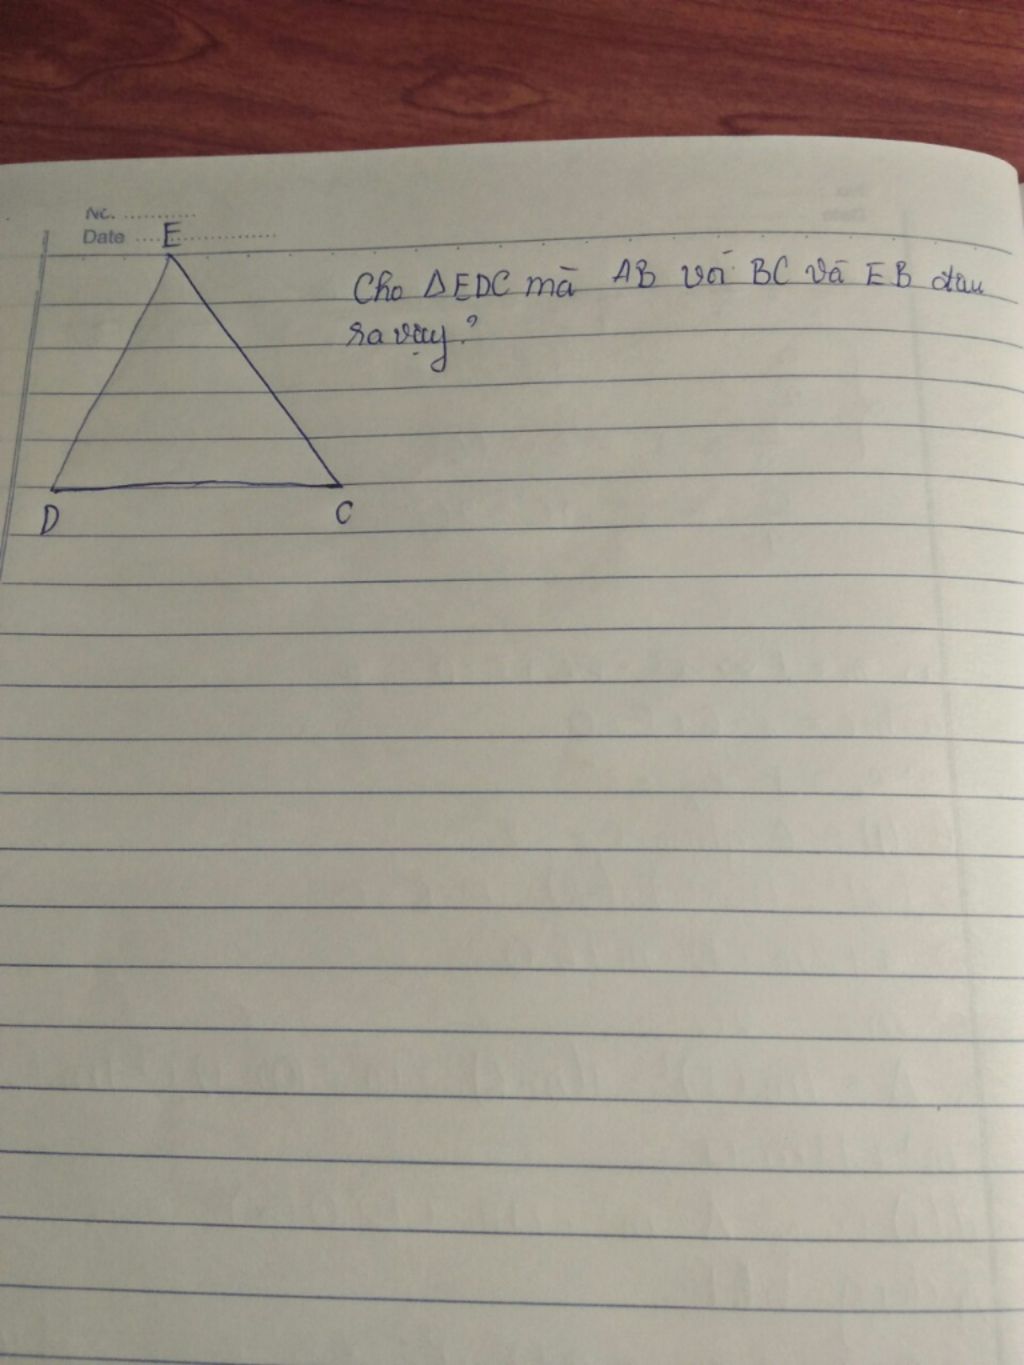 No.
Date
E
Cho ΔEDC mà AB với BC và EB đâu
ra vậy?
D
C